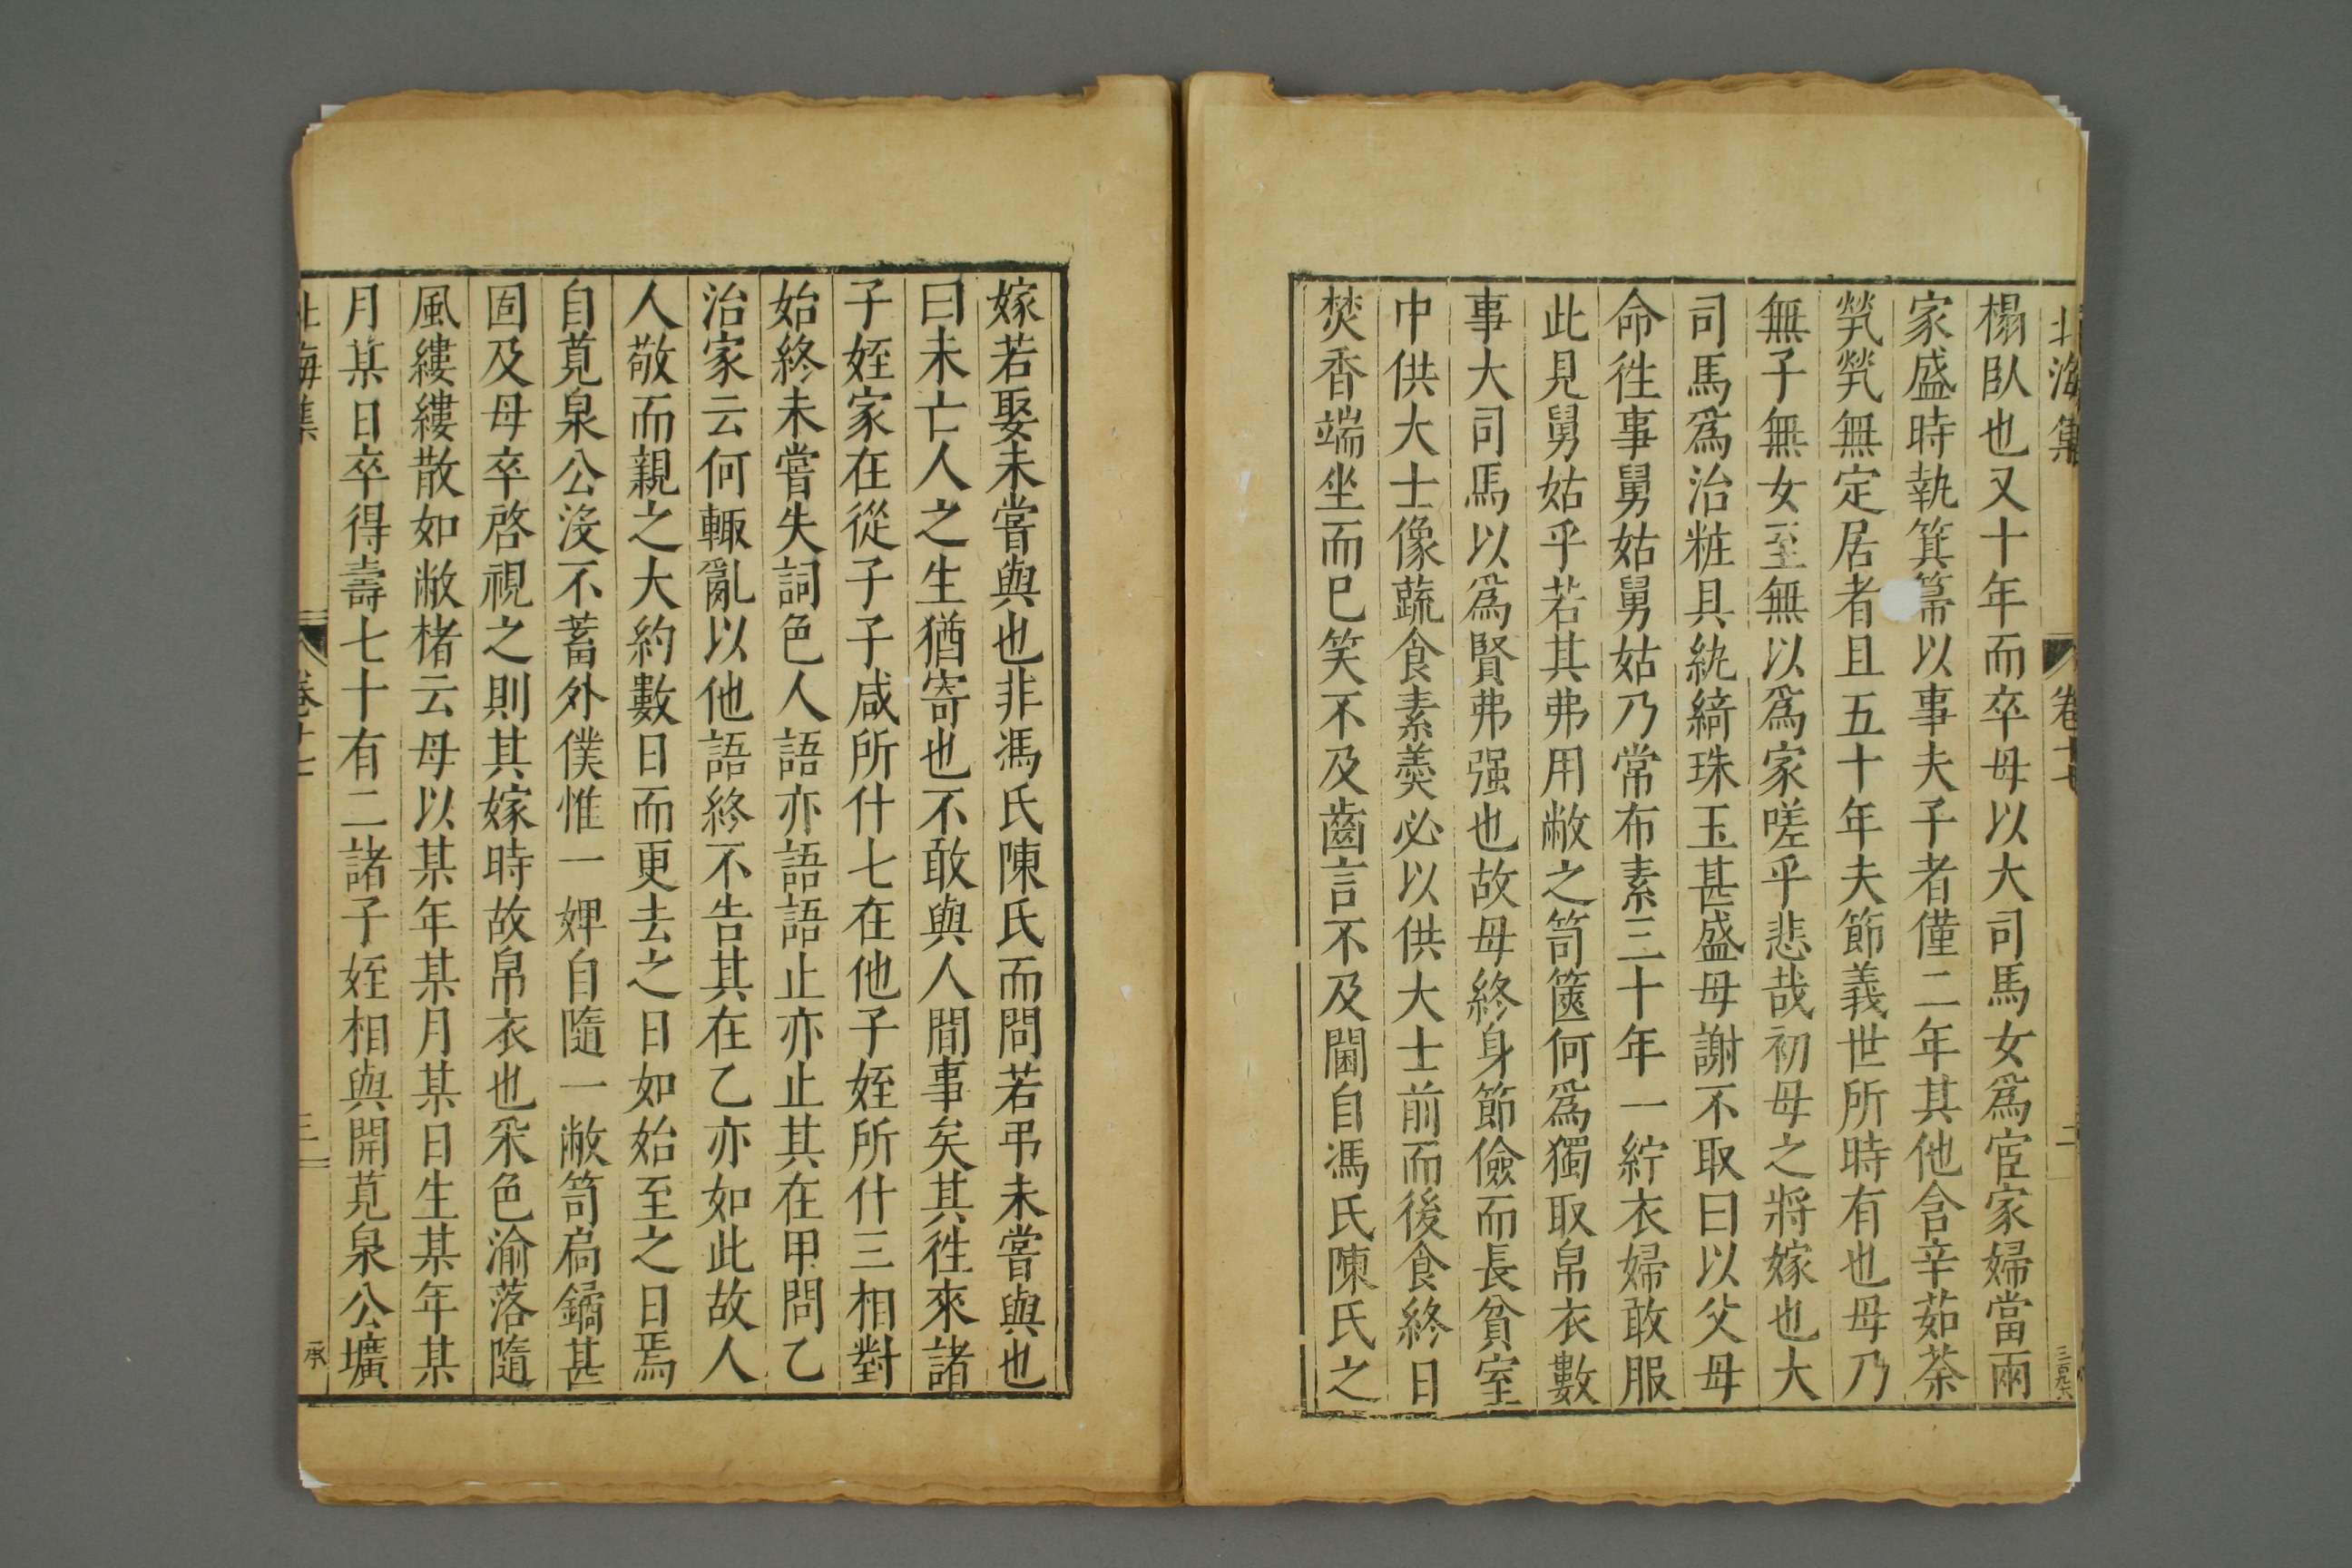 北海集 卷十七 二
榻臥也又十年而卒母以大司馬女爲宦家婦當兩
家盛時執箕箒以事夫子者僅二年其他含辛茹荼
煢煢無定居者且五十年夫節義世所時有也母乃
無子無女至無以爲家嗟乎悲哉初母之將嫁也大
司馬爲治粧具紈綺珠玉甚盛母謝不取曰以父母
命徃事舅姑舅姑乃常布素三十年一紵衣婦敢服
此見舅姑乎若其弗用敝之笥篋何爲獨取帛衣數
事大司馬以爲賢弗强也故母終身節儉而長貧室
中供大士像蔬食素羮必以供大士前而後食終日
焚香端坐而已笑不及齒言不及閫自馮氏陳氏之
嫁若娶未嘗與也非馮氏陳氏而問若弔未嘗與也
曰未亡人之生猶寄也不敢與人間事矣其徃來諸
子姪家在從子子咸所什七在他子姪所什三相對
始終未嘗失詞色人語亦語語止亦止其在甲問乙
治家云何輙亂以他語終不告其在乙亦如此故人
人敬而親之大約數日而更去之日如始至之日焉
自莧泉公沒不蓄外僕惟一婢自隨一敝笥扃鐍甚
固及母卒啓視之則其嫁時故帛衣也采色渝落隨
風縷縷散如敝楮云母以某年某月某日生某年某
月某日卒得壽七十有二諸子姪相與開莧泉公壙
北海集 卷十七 三 承